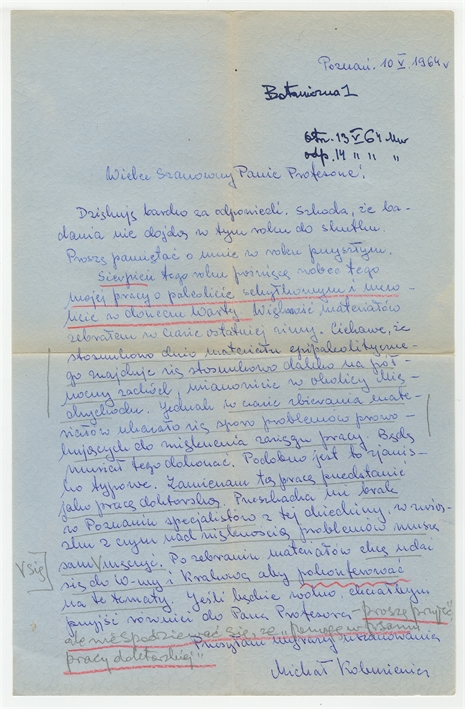 Poznań. 10 V. 1964 r
Botaniczna 1
otrz. 13 V 64
odp. 14 " " "
Wielce Szanowny Panie Profesorze!
Dziękuję bardzo za odpowiedź. Szkoda, że ba-
dania nie dojdą w tym roku do skutku.
Proszę pamiętać o mnie w roku przyszłym.
Sierpień tego roku poświęcę wobec tego
mojej pracy o paleolicie schyłkowym i mezo-
licie w dorzeczu Warty. Większość materiałów
zebrałem w czasie ostatniej zimy. Ciekawe, że
stosunkowo dużo materiału epipaleolityczne-
go znajduje się stosunkowo daleko na pół-
nocny zachód, mianowicie w okolicy Mię-
dzychodu. Jednak w czasie zbierania mate-
riałów ukazało się sporo problemów prowo-
kujących do zwiększenia zasięgu pracy. Będę
musiał tego dokonać. Podobno jest to zjawis-
ko typowe. Zamierzam tą pracę przedstawić
jako pracę doktorską. Przeszkadza mi brak
w Poznaniu specjalistów z tej dziedziny, w zwią-
zku z czym nad większością problemów muszę
sam V męczyć. Po zebraniu materiałów chcę udać
V się
się do W-wy i Krakowa aby pokonferować
na te tematy. Jeśli będzie wolno chciałbym
przyjść również do Pana Profesora - proszę przyjść
ale nie spodziewać się, że "pomogę w pisaniu
Przesyłam wyrazy uszanowania
pracy doktorskiej"
Michał Kobusiewicz